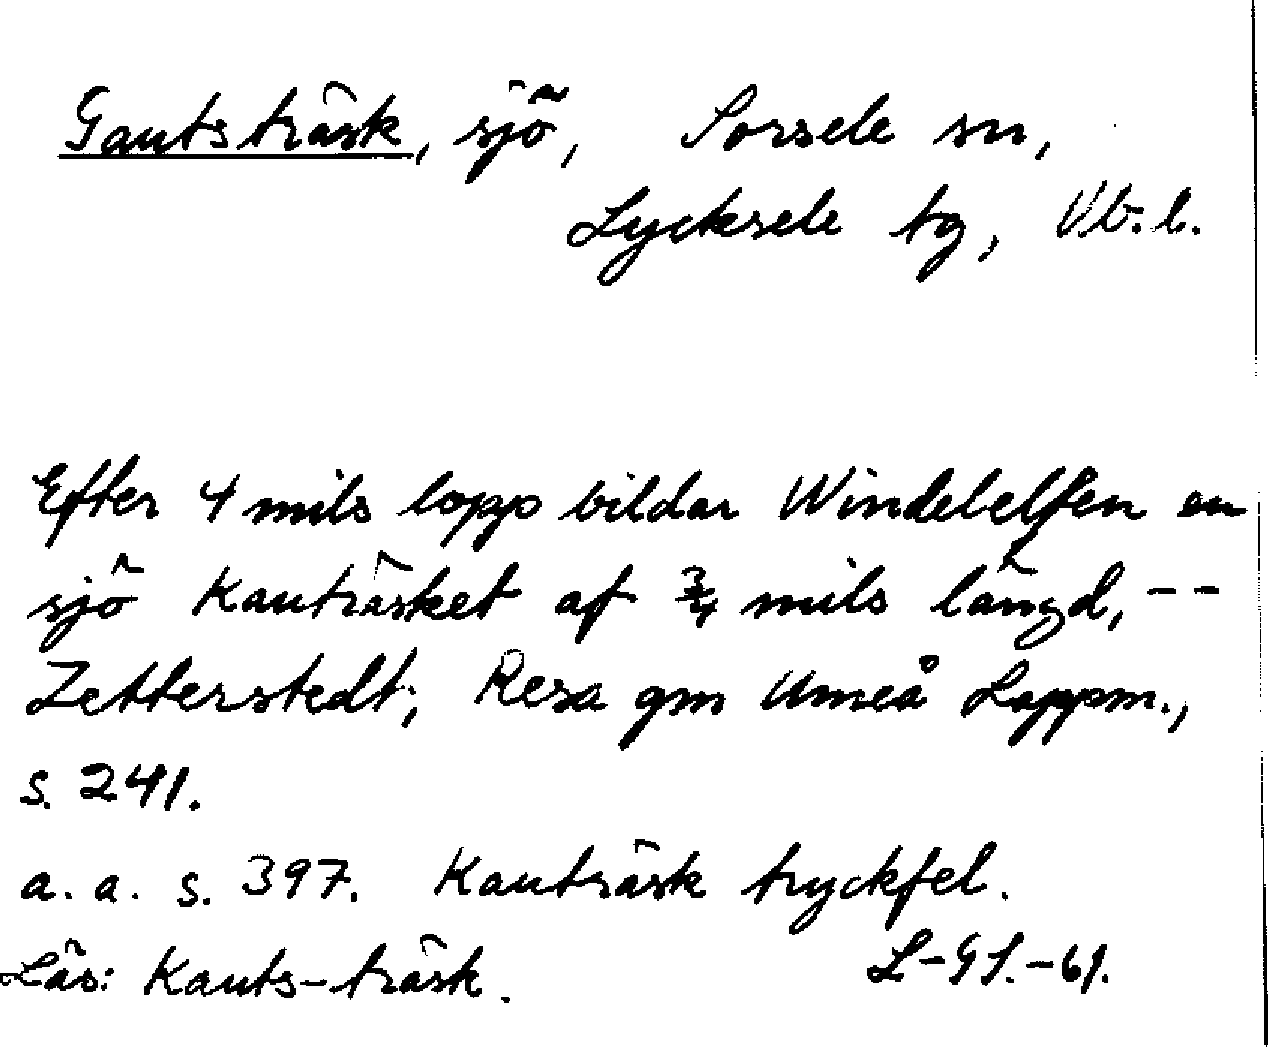 Gautsträsk, sjö, Sorsele sn,
Lycksele tg, Vb.l.
Efter 4 mils lopp bildar Windelelfen en
sjö Kauträsket af 3/4 mils längd, --
Zetterstedt, Resa gm Umeå Lappm.,
s. 241.
a. a. s. 397. Kauträsk tryckfel.
Läs: Kauts-träsk.
L-GS.-61.